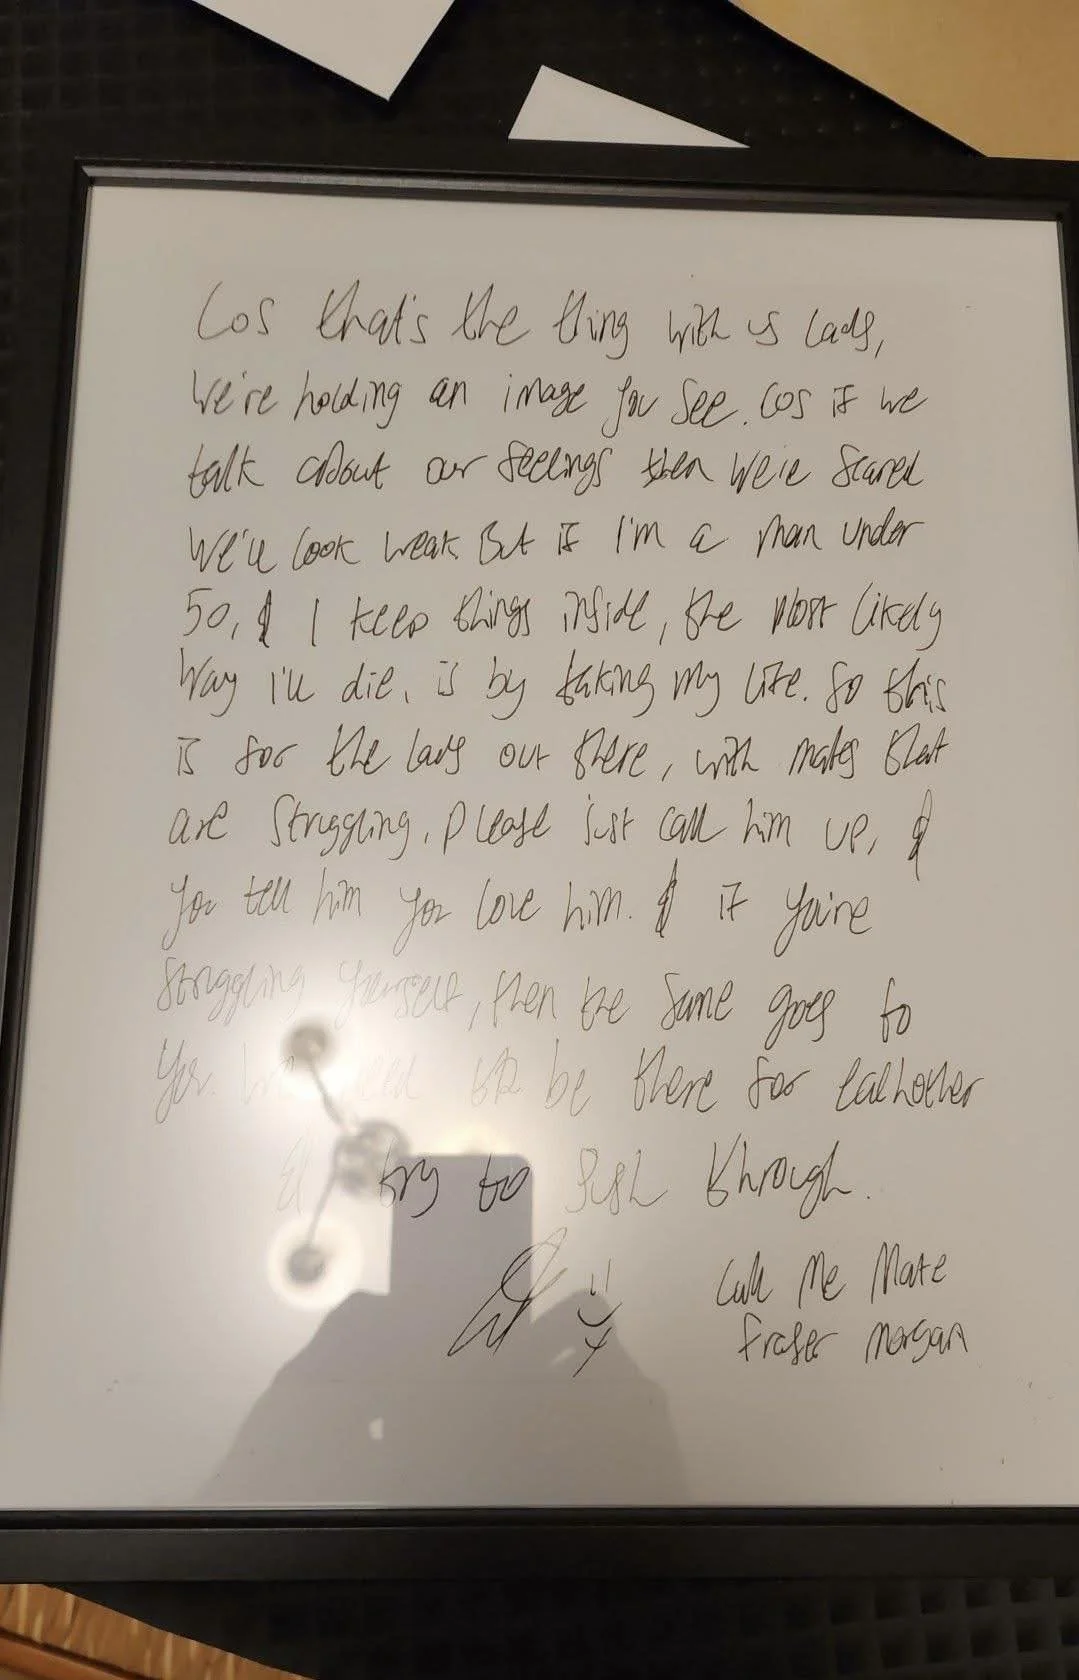 Cos that's the thing with us lads,
We're holding an image you see. Cos if we
talk about our feelings then we're scared
we'll look weak. But if I'm a man under
50, & I keep things inside, the most likely
way I'll die, is by taking my life. So this
is for the lads out there, with mates that
are struggling. Please just call him up, &
you tell him you love him. & if you're
struggling yourself, then the same goes to
you. need to be there for eachother
& try to push through.
Call Me Mate
Fraser Morgan